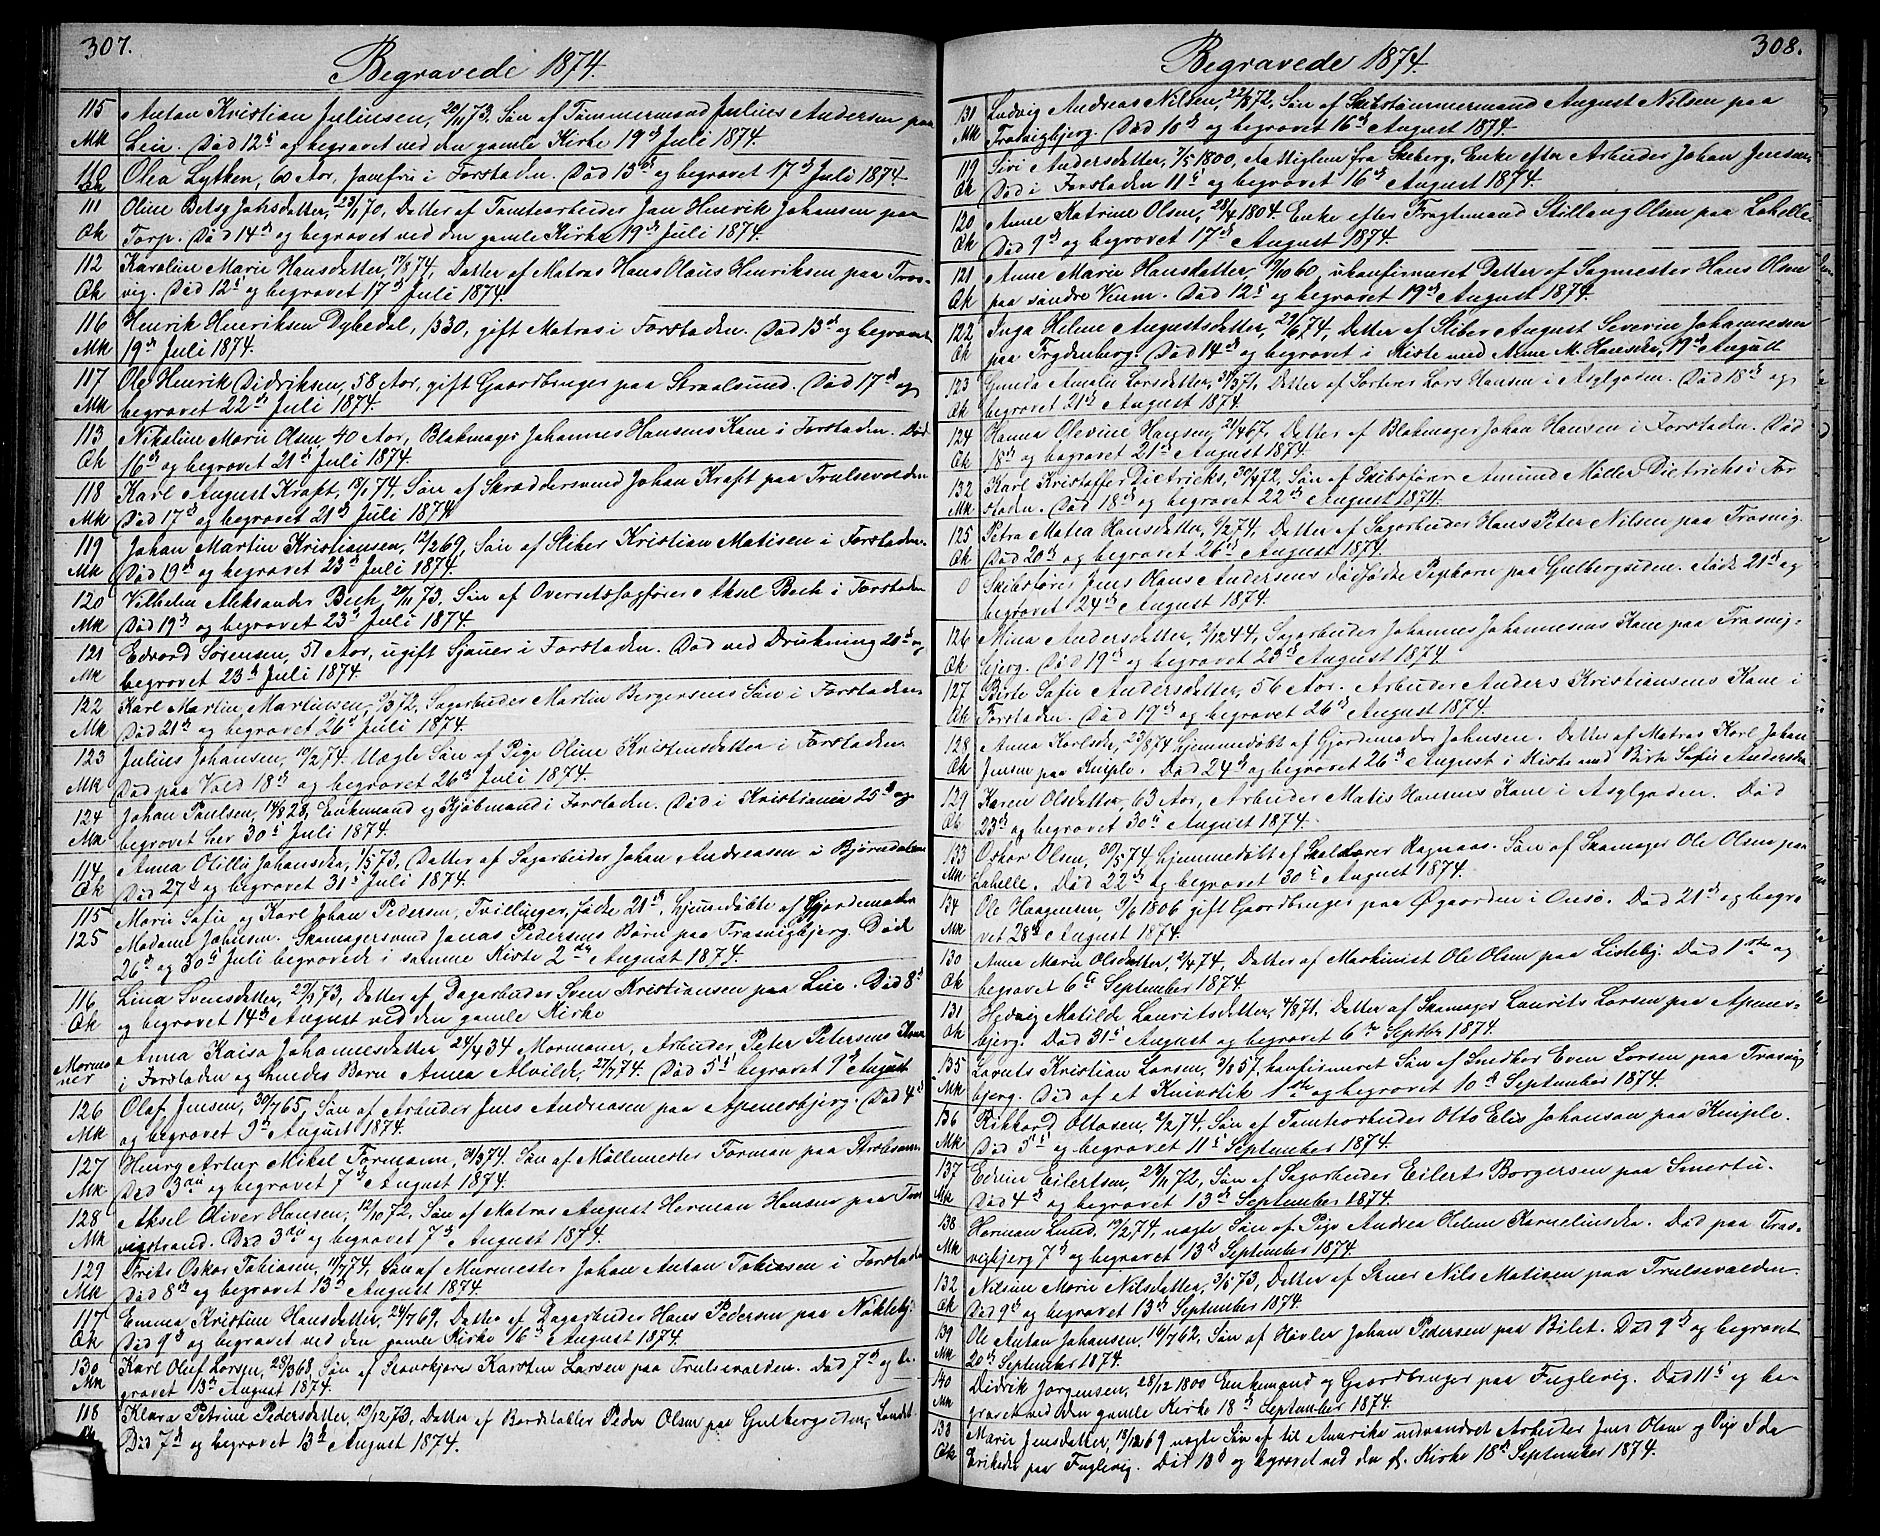 307.
Begravede 1874.
115 Anton Kristian Juliusen, 20/11 73, Søn af Tømmermand Julius Andersen paa
Mk Lie. Død 12te og begravet ved den gamle Kirke 19de Juli 1874.
110 Olea Lytken, 60 Aar, Jomfru i Forstaden. Død 13de og begravet 17de Juli 1874.
111 Oline Betsy Jahsdatter, 23/1 70, Datter af Tomtearbeider Jan Henrik Johansen paa
Qk Torp. Død 14de og begravet ved den gamle Kirke 19de Juli 1874.
112 Karoline Marie Hansdatter, Datter af Matros Hans Olaus Henriksen paa Tras-
Qk vig. Død 12te og begravet 17de Juli 1874.
116 Henrik Henriksen Dybedal, gift Matros i Forstaden. Død 13de og begravet
Mk 19de Juli 1874.
117 Ole Henrik Didriksen, 58 Aar, gift Gaardbruger paa Straalsund. Død 17de og
Mk begravet 22de Juli 1874.
113 Nikoline Marie Olsen, 40 Aar, Blokmager Johannes Hansens Kone i Forstaden. Død
Qk 16de og begravet 21de Juli 1874.
118 Karl August Kraft, 18/1 74, Søn af Skræddersvend Johan Kraft paa Trulsevolden
Mk Død 17de og begravet 21de Juli 1874
119 Johan Martin Kristiansen, 12/2 69, Søn af Skiber Kristian Matisen i Forstaden.
Mk Død 19de og begravet 23de Juli 1874.
120 Vilhelm Aleksander Bech, 20/11 73, Søn af Overretssagfører Aksel Bech i Forstaden
Mk Død 19de og begravet 23de Juli 1874.
121 Edvard Sørensen, 51 Aar, ugift Sjauer i Forstaden. Død ved Drukning 20de og
Mk begravet 23de Juli 1874.
122 Karl Martin Martinsen, Sagarbeider Martin Bergersens Søn i Forstaden
Mk Død 21de og begravet 26de Juli 1874.
123 Julius Johansen, 10/2 74. Uægte Søn af Pige Oline Kristensdatter i Forstaden.
Mk Død paa Vold 18de og begravet 26de Juli 1874.
124 Johan Paulsen, Enkemand og Kjøbmand i Forstaden. Død i Kristiania 25de og
Mk begravet her 30te Juli 1874.
114 Anna Otillie Johansda, 1/5 73, Datter af Sagarbeider Johan Andreasen i Bjørndalen
Qk Død 27de og begravet 31te Juli 1874.
115 Marie Sofie og Karl Johan Pedersen, Tvillinger, fødte 21de, hjemmedøbte af Gjordemoder
125 Madame Johnsen. Skomagersvend Jonas Pedersens Børn paa Trasvigbjerg. Døde
26de og 30te Juli begravede i samme Kiste 2den August 1874.
116 Lina Svensdatter, Datter af Dagarbeider Sven Kristiansen paa Lie. Død 8de
Qk og begravet 14de August ved den gamle Kirke
Mormoner Anna Kaisa Johannesdatter, 24/4 34 Mormoner, Arbeider Peter Petersens Kone
i Forstaden og hendes Barn Anna Alvilde, 27/7 74. Død 5te begravet 9de August
126 Olaf Jensen, 30/7 65, Søn af Arbeider Jens Andreasen paa Apenesbjerg. Død 4de
Mk og begravet 9de August 1874.
127 Henry Artur Mikal Formann, Søn af Møllemester Forman paa
Mk Død 3die og begravet 7de August 1874.
128 Aksel Oliver Hansen, 12/10 72, Søn af Matros August Herman Hansen paa Tras
Mk vigstrand. Død 3die og begravet 7de August 1874.
129 Frits Oskar Tobiasen, 11/7 74, Søn af Murmester Johan Anton Tobiasen i Forstaden
Mk Død 8de og begravet 13de August 1874.
117 Emma Kristine Hansdatter, 24/7 69, Datter af Dagarbeider Hans Pedersen paa Nøkleby.
Qk Død 9de og begravet ved den gamle Kirke 16de August 1874.
130 Karl Oluf Larsen, 28/9 68, Søn af Karsten Larsen paa Trulsevolden. Død 7de og be-
Mk gravet 13de August 1874.
118 Klara Petrine Pedersdatter, 19/12 73, Datter af Bordstabler Peder Olsen paa Gulbergsiden,
Qk Død 7de og begravet 13de August 1874.
308.
Begravede 1874.
131 Ludvig Andreas Nilsen, Søn af Skibstømmermand August Nilsen paa
Mk Trasvigbjerg. Død 10de og begravet 16de August 1874.
119 Siri Andersdatter, 7/5 1800, Fattiglem fra Skeberg. Enke efter Arbeider Johan Jensen,
Qk Død i Forstaden 11te og begravet 16de August 1874.
120 Anne Katrine Olsen, 28/4 1804. Enke efter Fragtemand Stillaug Olsen paa Labella.
Qk Død 9de og begravet 17de August 1874.
121 Anne Marie Hansdatter, ukonfirmeret Datter af Sagmester Hans Olsen
Qk paa søndre Veum. Død 12te og begravet 19de August 1874.
122 Inga Helene Augustsdatter, Datter af Skiber August Severin Johannesen
Qk paa Trygdenberg. Død 14de og begravet i Kiste med Anne M. Hansda, 19de August
123 Gunda Amalie Larsdatter, Datter af Sorterer Lars Hansen i Asylgaden. Død 18de og
Qk begravet 21de August 1874.
124 Hanna Olevine Hansen, 21/4 67, Datter af Blokmager Johan Hansen i Forstaden. Død
Qk 18de og begravet 21de August 1874.
132 Karl Kristoffer Dietrichs, Søn af Skibsfører Amund Møller Dietrichs i For
Mk staden. Død 18de og begravet 22de August 1874.
125 Petra Matea Hansdatter, Datter af Sagarbeider Hans Peter Nilsen paa Trasvig.
Qk Død 20de og begravet 26de August 1874.
0 Skibsfører Jens Olaus Andersens dødfødte Pigebarn paa Gulbergsiden. Født 21de og
begravet 24de August 1874.
126 Mina Andersdatter, 2/12 44, Sagarbeider Johannes Johannesens Kone paa Trasvig-
Qk bjerg. Død 19de og begravet 23de August 1874.
127 Birte Sofie Andersdatter, 56 Aar. Arbeider Anders Kristiansens Kone i
Qk Forstaden. Død 19de og begravet 26de August 1874.
128 Anna Karlsda, 23/8 74 hjemmedøbt af Gjordemoder Johnsen. Datter af Matros Karl Johan
Qk Jensen paa Kniple. Død 24de og begravet 26de August i Kiste med Birte Sofie Andersda
129 Karen Olsdatter, 63 Aar, Arbeider Matis Hansens Kone i Asylgaden. Død
Qk 23de og begravet 30te August 1874.
133 Oskar Olsen, 30/5 74, hjemmedøbt af Skolelærer Ragnaas. Søn af Skomager Ole Olsen paa
Mk Labelle. Død 22de og begravet 30te August 1874.
134 Ole Haagensen, 9/6 1806 gift Gaardbruger paa Øgaarden i Onsø. Død 21de og begra-
Mk vet 28de August 1874.
130 Anna Marie Olsdatter, Datter af Maskinist Ole Olsen paa Lisleby. Død 1ste og
Qk begravet 6te September 1874.
131 Hedvig Matilde Lauritsdatter, 4/8 71. Datter af Skomager Laurits Larsen paa Apenes-
Qk bjerg. Død 31te August og begravet 6te Septbr 1874.
135 Lauris Kristian Larsen, konfirmeret Søn af Sandkor Even Larsen paa Trasvig
Mk bjerg. Død af et Knivstik 1ste og begravet 10de September 1874.
136 Rikhard Ottosen, 2/2 74, Søn af Tomtearbeider Otto Elis Johanson paa Kniple.
Mk Død 5te og begravet 11te September 1874.
137 Edvin Eilertsen, 23/11 72, Søn af Sagarbeider Eilert Borgersen paa Smertu.
Mk Død 4de og begravet 13de September 1874.
138 Herman Lund, 19/2 74, uægte Søn af Pige Andrea Helene Kornelinsda. Død paa Tras-
Mk vigbjerg 7de og begravet 13de September 1874
132 Nilsine Marie Nilsdatter, Datter af Nils Matisen paa Trulsevolden.
Qk Død 9de og begravet 13de September 1874.
139 Ole Anton Johansen, 16/7 62, Søn af Høvler Johan Pedersen paa Bilet. Død 9de og begravet
Mk 20de September 1874.
140 Didrik Jørgensen, 28/12 1800 Enkemand og Gaardbruger paa Fuglevig. Død 11te og be-
Mk gravet ved den gamle Kirke 18de September 1874.
133 Marie Jensdatter, 18/12 69 uægte af til Amerika udvandret Arbeider Jens Olsen og Pige Ida
Qk Eriksda paa Fuglevig. Død 13de og begravet ved den gl. Kirke 18de September 1874.